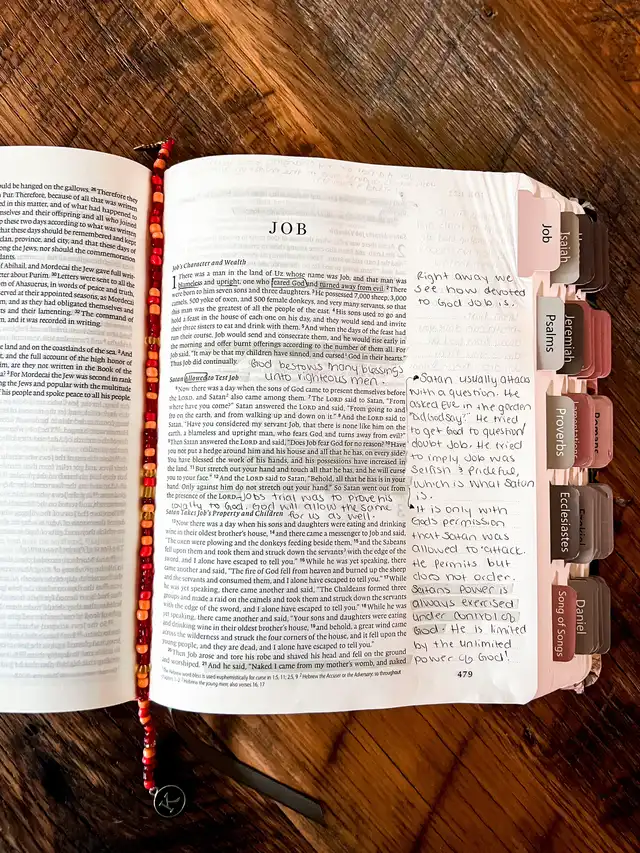 ould be hanged on the gallows. 26 Therefore they
Pur. Therefore, because of all that was written
ed in this matter, and of what had happened to
mselves and their offspring and all who joined
p these two days according to what was written
that these days should be remembered and kept
clan, province, and city, and that these days of
ong the Jews, nor should the commemoration
dants.
of Abihail, and Mordecai the Jew gave full writ-
er about Purim. 30 Letters were sent to all the
m of Ahasuerus, in words of peace and truth,
erved at their appointed seasons, as Mordecai
m, and as they had obligated themselves and
ts and their lamenting. 32 The command of
m, and it was recorded in writing.
he land and on the coastlands of the sea. 2 And
and the full account of the high honor of
im, are they not written in the Book of the
? 3 For Mordecai the Jew was second in rank
g the Jews and popular with the multitude
his people and spoke peace to all his people.
JOB
Job's Character and Wealth
1 There was a man in the land of Uz whose name was Job, and that man was
blameless and upright, one who feared God and turned away from evil. 2 There
were born to him seven sons and three daughters. 3 He possessed 7,000 sheep, 3,000
camels, 500 yoke of oxen, and 500 female donkeys, and very many servants, so that
this man was the greatest of all the people of the east. 4 His sons used to go and
hold a feast in the house of each one on his day, and they would send and invite
their three sisters to eat and drink with them. 5 And when the days of the feast had
run their course, Job would send and consecrate them, and he would rise early in
the morning and offer burnt offerings according to the number of them all. For
Job said, "It may be that my children have sinned, and cursed God in their hearts."
Thus Job did continually.
God bestows many blessings
unto righteous men.
Satan Allowed to Test Job
6 Now there was a day when the sons of God came to present themselves before
the LORD, and Satan also came among them. 7 The LORD said to Satan, "From
where have you come?" Satan answered the LORD and said, "From going to and
fro on the earth, and from walking up and down on it." 8 And the LORD said to
Satan, "Have you considered my servant Job, that there is none like him on the
earth, a blameless and upright man, who fears God and turns away from evil?"
9 Then Satan answered the LORD and said, "Does Job fear God for no reason? 10 Have
you not put a hedge around him and his house and all that he has, on every side?
You have blessed the work of his hands, and his possessions have increased in
the land. 11 But stretch out your hand and touch all that he has, and he will curse
you to your face." 12 And the LORD said to Satan, "Behold, all that he has is in your
hand. Only against him do not stretch out your hand." So Satan went out from
the presence of the LORD.
Jobs trial was to prove his
loyalty to God. God will allow the same
for us as well.
Satan Takes Job's Property and Children
13 Now there was a day when his sons and daughters were eating and drinking
wine in their oldest brother's house, 14 and there came a messenger to Job and said,
"The oxen were plowing and the donkeys feeding beside them, 15 and the Sabeans
fell upon them and took them and struck down the servants with the edge of the
sword, and I alone have escaped to tell you." 16 While he was yet speaking, there
came another and said, "The fire of God fell from heaven and burned up the sheep
and the servants and consumed them, and I alone have escaped to tell you." 17 While
he was yet speaking, there came another and said, "The Chaldeans formed three
groups and made a raid on the camels and took them and struck down the servants
with the edge of the sword, and I alone have escaped to tell you." 18 While he was
yet speaking, there came another and said, "Your sons and daughters were eating
and drinking wine in their oldest brother's house, 19 and behold, a great wind came
across the wilderness and struck the four corners of the house, and it fell upon the
young people, and they are dead, and I alone have escaped to tell you."
20 Then Job arose and tore his robe and shaved his head and fell on the ground
and worshiped. 21 And he said, "Naked I came from my mother's womb, and naked
The Hebrew word bless is used euphemistically for curse in 1:5, 11; 2:5, 9 Hebrew the Accuser or the Adversary; so throughout
Hebrew the young men also verses 16, 17
479
Right away we
see how devoted
to God Job is.
Satan usually attacks
with a question. He
asked Eve in the garden
"Did God say?" He tried
to get God to question/
doubt Job. He tried
to imply Job was
selfish & prideful,
which is what Satan
is.
It is only with
God's permission
that Satan was
allowed to attack.
He permits but
does not order.
Satans power is
always exercised
under control of
God. He is limited
by the unlimited
power of God!
Job
Isaiah
Psalms
Jeremiah
Proverbs
Lamentations
Romans
Ecclesiastes
Ezekiel
Song of Songs
Daniel